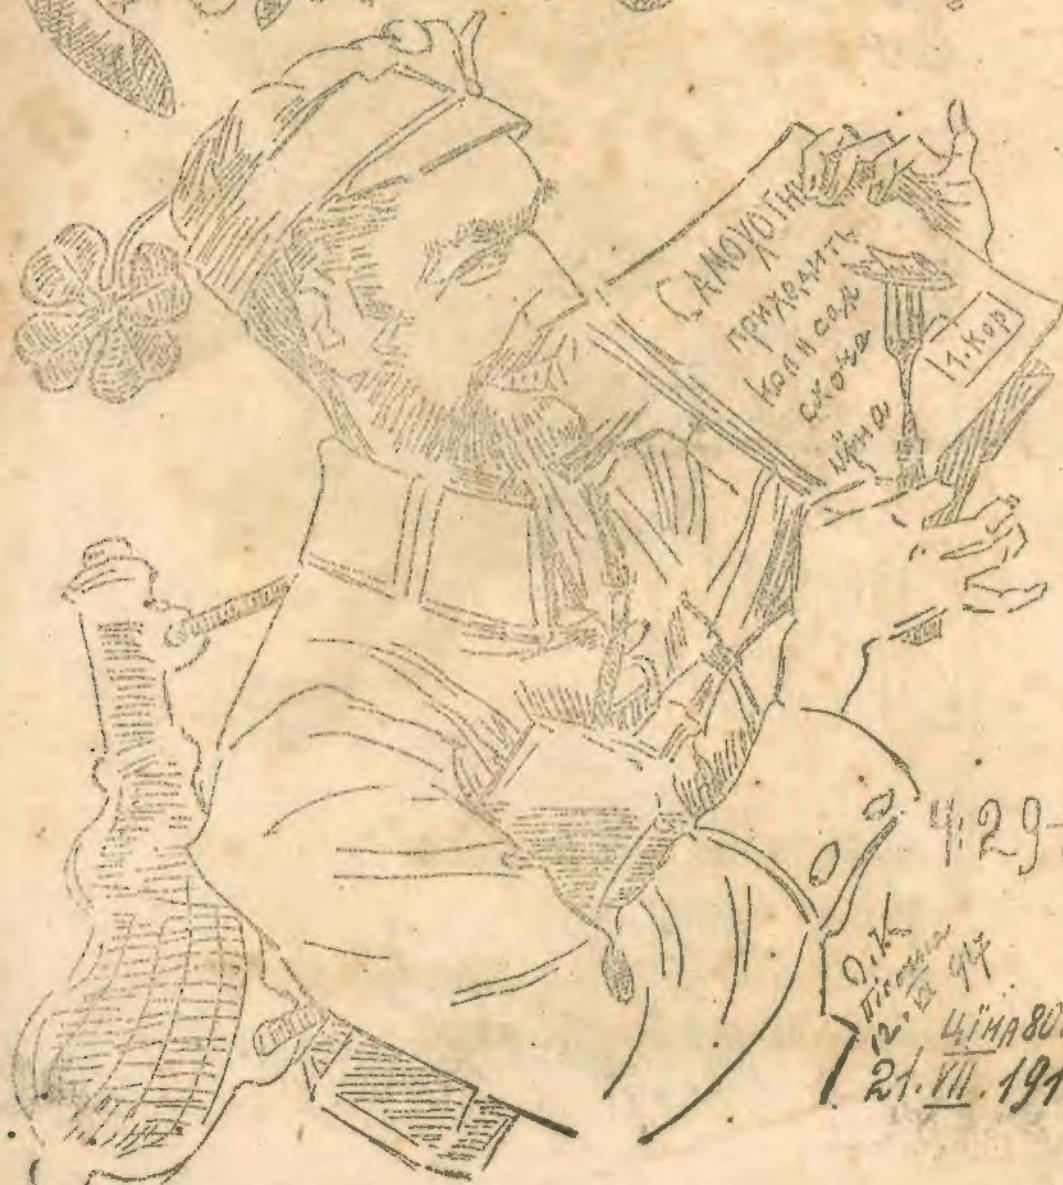 САМОХОТНИ
приходить
коли сам
схоче
ціна
1. Кор
4.29
12. VII 917
ЦЇНА 80
21. VII. 191